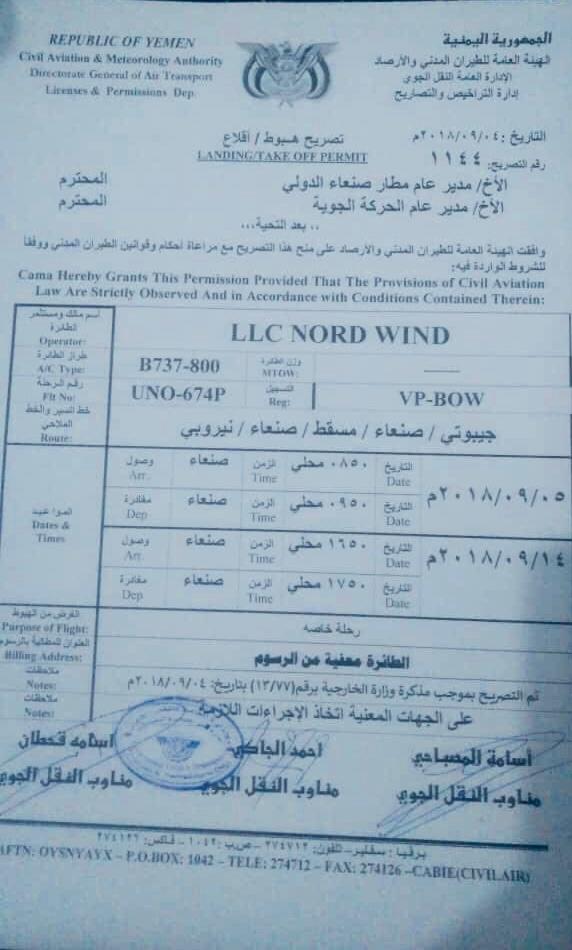 REPUBLIC OF YEMEN
Civil Aviation & Meteorology Authority
Directorate General of Air Transport
Licenses & Permissions Dep.
الجمهورية اليمنية
الهيئة العامة للطيران المدني والأرصاد
الإدارة العامة النقل الجوي
إدارة التراخيص والتصاريح
التاريخ : ٢٠١٨/٠٩/٠٤م
رقم التصريح: ١١٤٤
تصريح هبوط / أقلاع
LANDING/TAKE OFF PERMIT
الأخ/ مدير عام مطار صنعاء الدولي المحترم
الأخ/ مدير عام الحركة الجوية المحترم
.. بعد التحية،،،
وافقت الهيئة العامة للطيران المدني والأرصاد على منح هذا التصريح مع مراعاة أحكام وقوانين الطيران المدني ووفقا
للشروط الواردة فيه:
Cama Hereby Grants This Permission Provided That The Provisions of Civil Aviation
Law Are Strictly Observed And in Accordance with Conditions Contained Therein:
أسم مالك ومستثمر
الطائرة
Operator:
LLC NORD WIND
طراز الطائرة
A/C Type:
B737-800
وزن الطائرة
MTOW:
رقم الرحلة
Flt No:
UNO-674P
التسجيل
Reg:
VP-BOW
خط السير والخط
الملاحي
Route:
جيبوتي / صنعاء / مسقط / صنعاء / نيروبي
المواعيد
Dates &
Times
وصول
Arr.
صنعاء
الزمن
Time
٠٨٥٠ محلي
التاريخ
Date
٢٠١٨/٠٩/٠٥م
مغادرة
Dep
صنعاء
الزمن
Time
٠٩٥٠ محلي
التاريخ
Date
وصول
Arr.
صنعاء
الزمن
Time
١٦٥٠ محلي
التاريخ
Date
٢٠١٨/٠٩/١٤م
مغادرة
Dep
صنعاء
الزمن
Time
١٧٥٠ محلي
التاريخ
Date
الغرض من الهبوط
Purpose of Flight:
رحلة خاصه
العنوان للمطالبة بالرسوم
Billing Address:
الطائرة معفية من الرسوم
ملاحظات
Notes:
تم التصريح بموجب مذكرة وزارة الخارجية برقم(١٣/٧٧) بتاريخ: ٢٠١٨/٠٩/٠٤م
ملاحظات
Notes:
على الجهات المعنية اتخاذ الإجراءات اللازمة
أسامة المصباحي
مناوب النقل الجوي
احمد الجاكي
مناوب النقل الجوي
اسامه قحطان
مناوب النقل الجوي
برقيا : سفاير– تلفون: ٢٧٤٧١٢ – ص.ب: ١٠٤٢ – فاكس: ٢٧٤١٢٦
AFTN: OYSNYAYX – P.O.BOX: 1042 – TELE: 274712 – FAX: 274126 –CABIE(CIVILAIR)